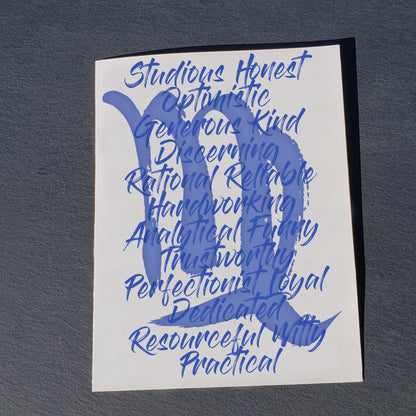 Studious Honest
Optimistic
Generous Kind
Discerning
Rational Reliable
Hardworking
Analytical Funny
Trustworthy
Perfectionist Loyal
Dedicated
Resourceful Witty
Practical